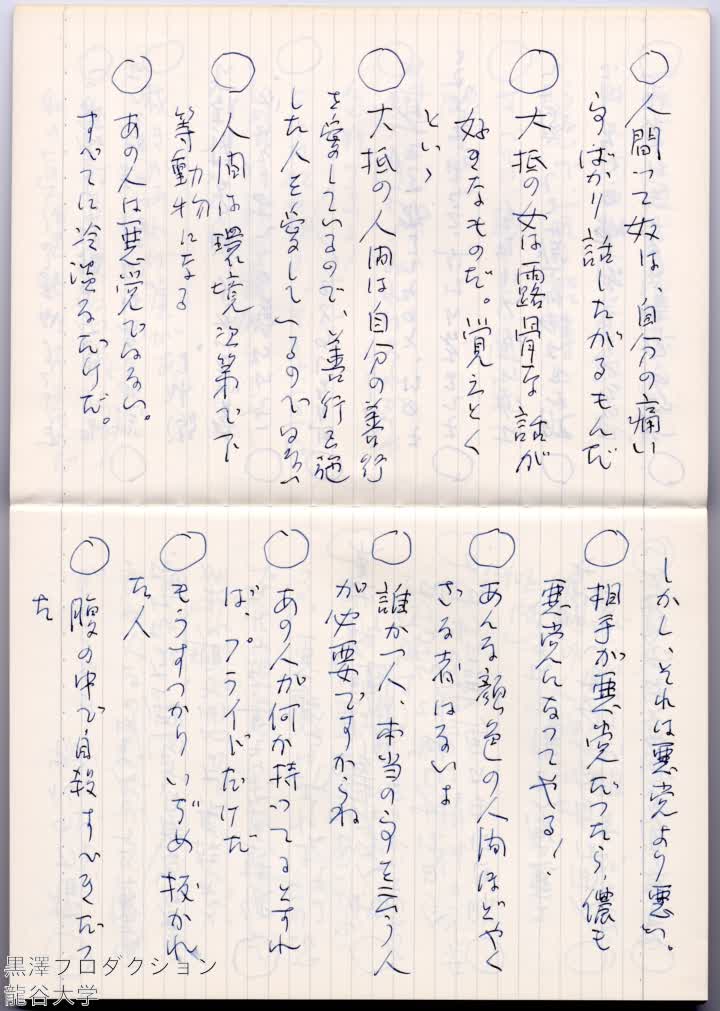 ○人間って奴は、自分の痛い
事ばかり話したがるもんだ
○大抵の女は露骨な話が
好きなものだ。覚えとく
といゝ
○大抵の人間は自分の善行
を愛しているので、善行を施
した人を愛しているのではない
○人間は環境次第で下
等動物になる
○あの人は悪党ではない。
すべてに冷淡なだけだ。
しかし、それは悪党より悪い。
○相手が悪党だったら、儂も
悪党になってやる!、
○あんな顔色の人間ほどやく
ざな者はないよ
○誰か一人、本当の事を云う人
が必要ですからね
○あの人が何か持ってるとすれ
ば、プライドだけだ
○もうすっかりいぢめ抜かれ
た人
○腹の中で自殺すべきだっ
た
黒澤プロダクション
龍谷大学